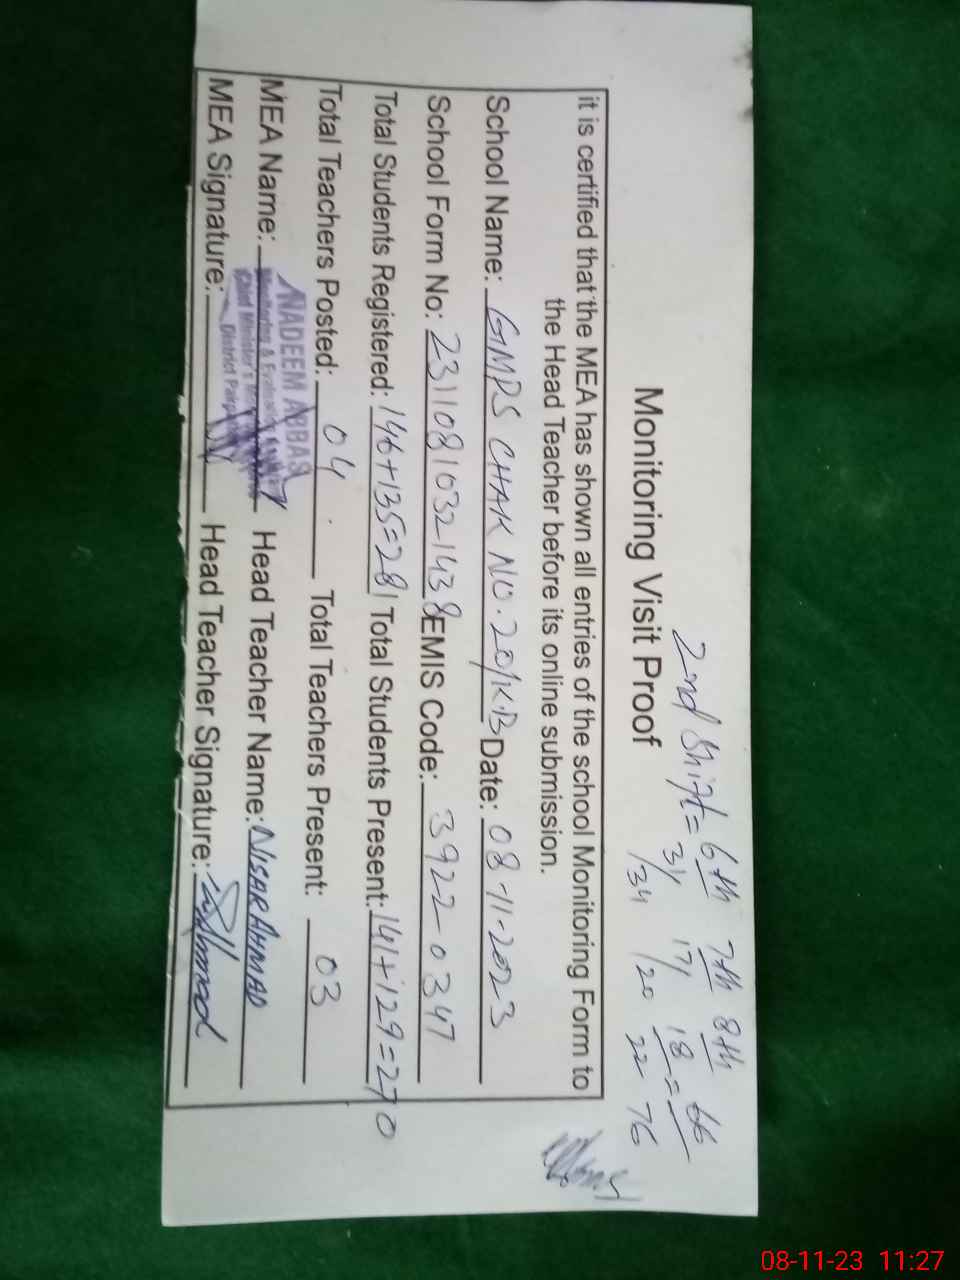 2nd Shift = 6th 7th 8th
31/34 17/20 18/22 = 66/76
Monitoring Visit Proof
it is certified that the MEA has shown all entries of the school Monitoring Form to
the Head Teacher before its online submission.
School Name: GMPS CHAK NO. 20/K.B Date: 08-11-2023
School Form No: 23110810321438 EMIS Code: 3922-0347
Total Students Registered: 146+135=281 Total Students Present: 141+129=270
Total Teachers Posted: 04 Total Teachers Present: 03
NADEEM ABBAS
MEA Name: Head Teacher Name: NISAR AHMAD
Monitoring & Evaluation
Chief Minister's
District Pakpa
MEA Signature: Head Teacher Signature:
08-11-23 11:27